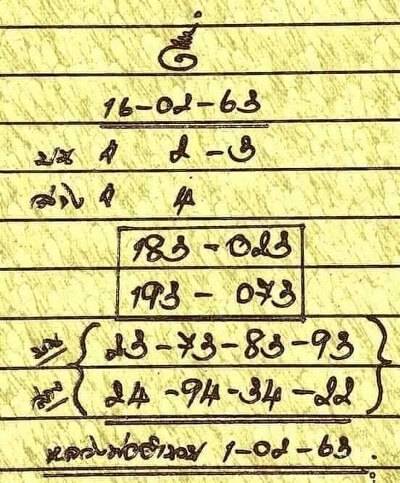 16-02-63
บน ๆ 2-3
ล่าง ๆ 4
183-023
193-073
บน { 23-73-83-93 }
ล่าง { 24-94-34-22 }
1-02-63